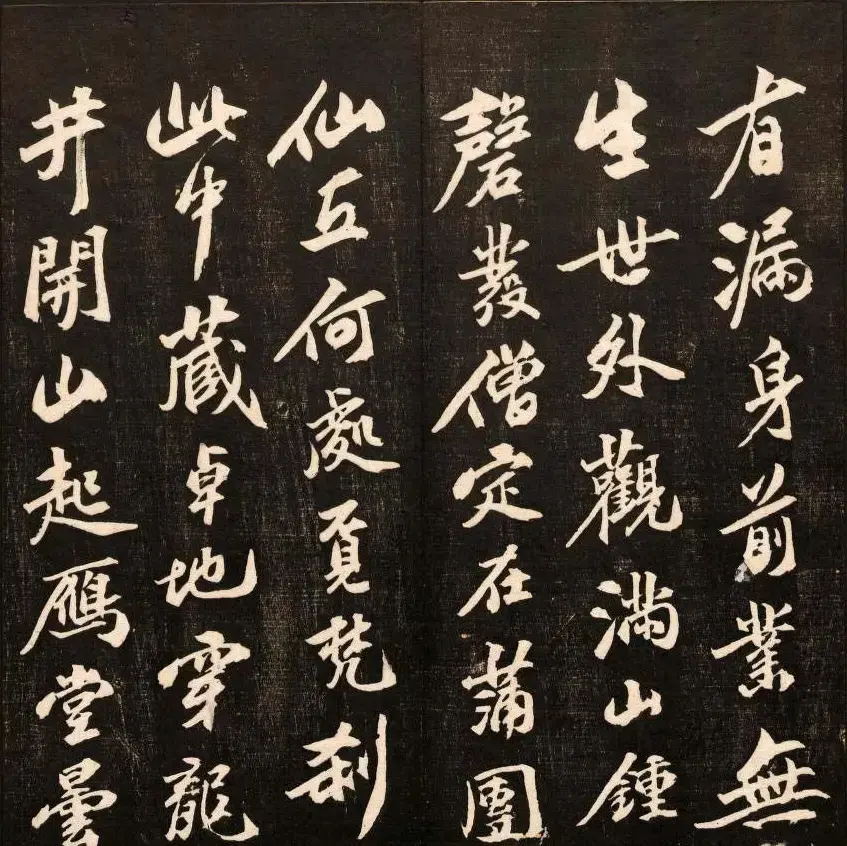 有漏身前業無
生世外觀滿山鍾
磬發僧定在蒲團
仙丘何處覓梵刹
此中藏卓地穿龍
井開山起鴈堂曇